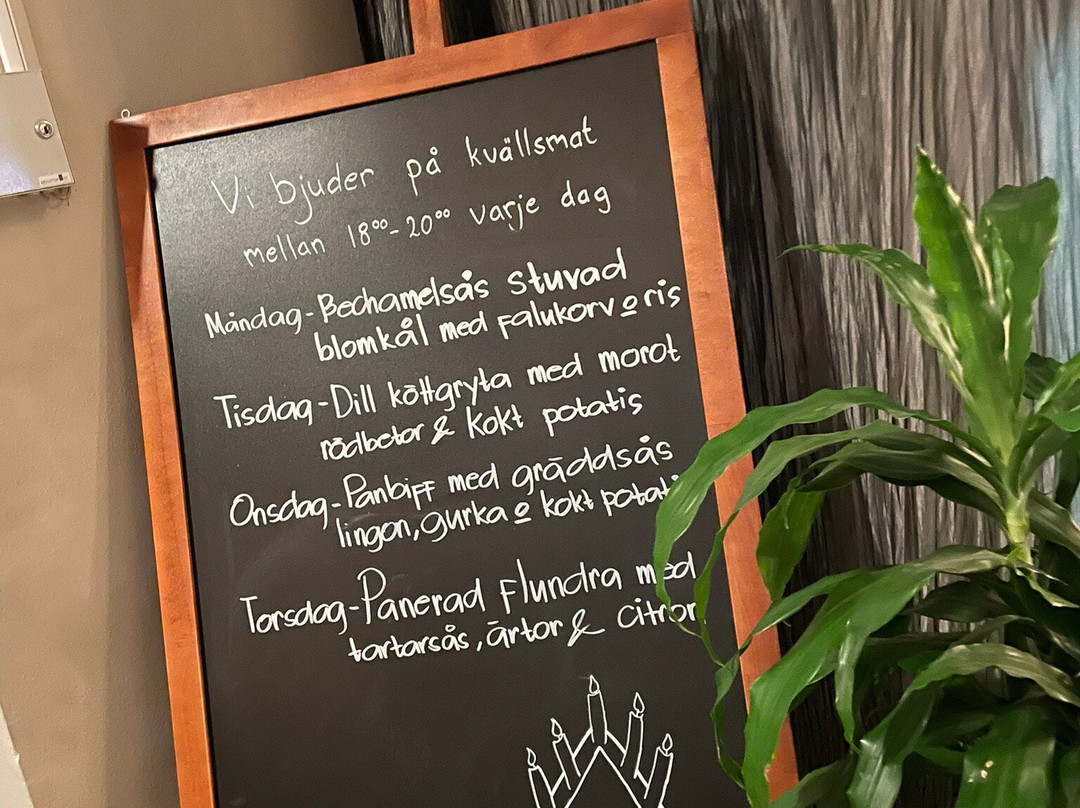 Vi bjuder på kvällsmat
mellan 18⁰⁰-20⁰⁰ varje dag
Måndag-Bechamelsås stuvad
blomkål med falukorv o ris
Tisdag-Dill köttgryta med morot
rödbetor & kokt potatis
Onsdag-Panbiff med gräddsås
lingon, gurka o kokt potati
Torsdag-Panerad flundra med
tartarsås, ärtor & citron